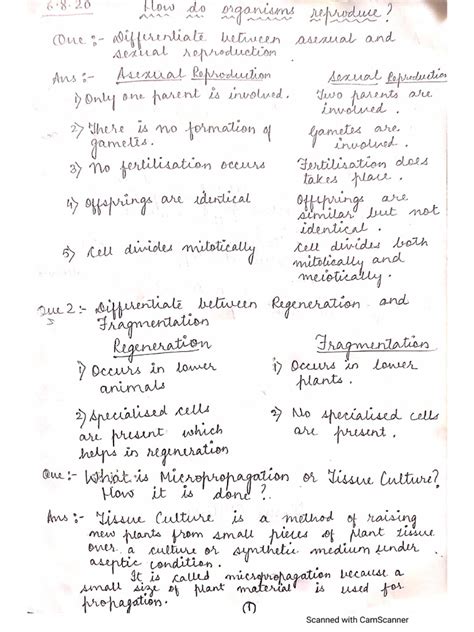 6.8.20 How do organisms reproduce?
Que :- Differentiate between asexual and
sexual reproduction
Ans :- Asexual Reproduction Sexual Reproduction
1) Only one parent is involved. Two parents are
involved.
2) There is no formation of Gametes are
gametes. involved.
3) No fertilisation occurs Fertilisation does
takes place.
4) Offsprings are identical Offsprings are
similar but not
identical.
5) Cell divides mitotically Cell divides both
mitotically and
meiotically.
Que 2:- Differentiate between Regeneration and
Fragmentation
Regeneration Fragmentation
1) Occurs in lower 1) Occurs in lower
animals plants.
2) Specialised cells 2) No specialised cells
are present which are present.
helps in regeneration
Que :- What is Micropropagation or Tissue Culture?
How it is done?
Ans :- Tissue Culture is a method of raising
new plants from small pieces of plant tissue
over a culture or synthetic medium under
aseptic condition.
It is called micropropagation because a
small size of plant material is used for
propagation.
(1)
Scanned with CamScanner